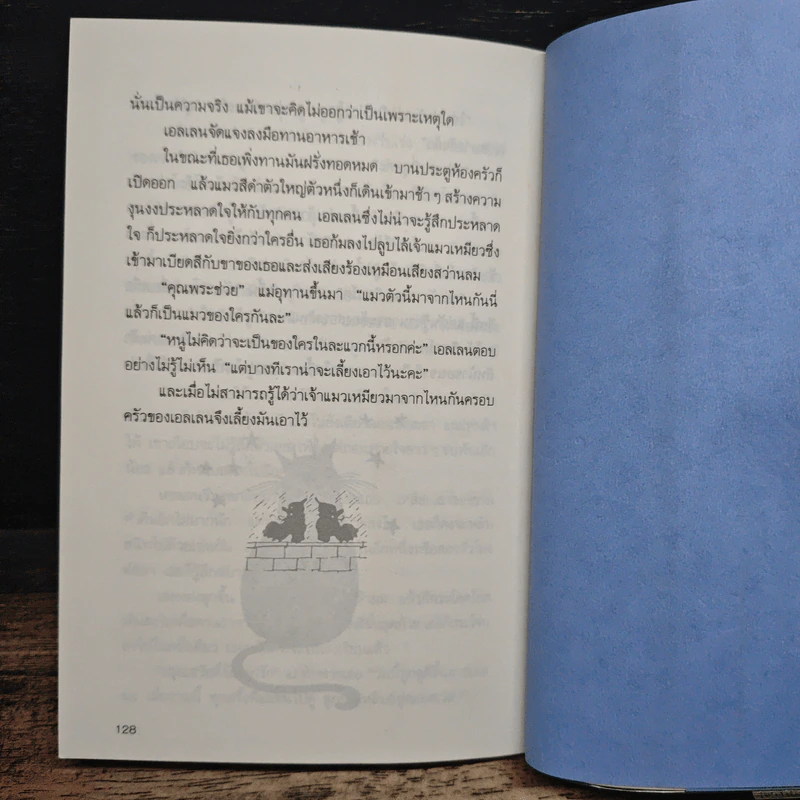 นั่นเป็นความจริง แม้เขาจะคิดไม่ออกว่าเป็นเพราะเหตุใด
เอลเลนจัดแจงลงมือทานอาหารเช้า
ในขณะที่เธอเพิ่งทานมันฝรั่งทอดหมด บานประตูห้องครัวก็
เปิดออก แล้วแมวสีดำตัวใหญ่ตัวหนึ่งก็เดินเข้ามาช้า ๆ สร้างความ
งุนงงประหลาดใจให้กับทุกคน เอลเลนซึ่งไม่น่าจะรู้สึกประหลาด
ใจ ก็ประหลาดใจยิ่งกว่าใครอื่น เธอก้มลงไปลูบไล้เจ้าแมวเหมียวซึ่ง
เข้ามาเบียดสีกับขาของเธอและส่งเสียงร้องเหมือนเสียงสว่านลม
“คุณพระช่วย” แม่อุทานขึ้นมา “แมวตัวนี้มาจากไหนกันนี่
แล้วก็เป็นแมวของใครกันละ”
“หนูไม่คิดว่าจะเป็นของใครในละแวกนี้หรอกค่ะ” เอลเลนตอบ
อย่างไม่รู้ไม่เห็น “แต่บางทีเราน่าจะเลี้ยงเอาไว้นะคะ”
และเมื่อไม่สามารถรู้ได้ว่าเจ้าแมวเหมียวมาจากไหนกันครอบ
ครัวของเอลเลนจึงเลี้ยงมันเอาไว้
128